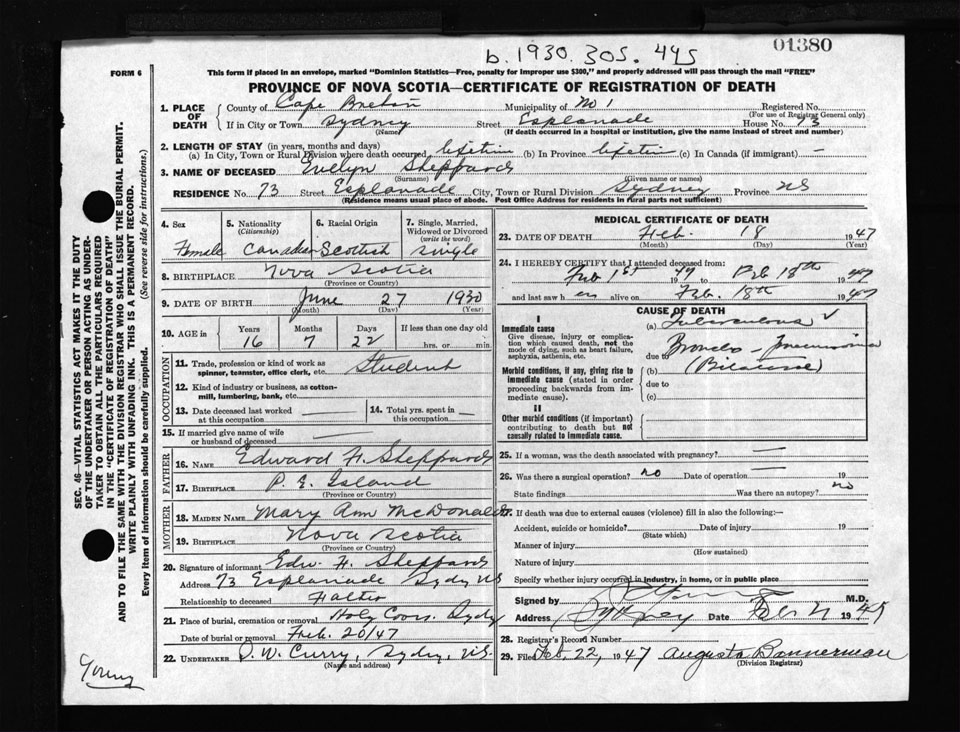 b. 1930. 305. 445
01380
FORM 6
This form if placed in an envelope, marked "Dominion Statistics—Free, penalty for improper use $300," and properly addressed will pass through the mail "FREE"
PROVINCE OF NOVA SCOTIA—CERTIFICATE OF REGISTRATION OF DEATH
1. PLACE OF DEATH County of Cape Breton Municipality of No 1 Registered No.
(For use of Registrar General only)
If in City or Town Sydney Street Esplanade House No. 73
(Name) (If death occurred in a hospital or institution, give the name instead of street and number)
2. LENGTH OF STAY (in years, months and days)
(a) In City, Town or Rural Division where death occurred lifetim (b) In Province lifetim (c) In Canada (if immigrant) —
3. NAME OF DECEASED Evelyn Sheppard
(Surname) (Given name or names)
RESIDENCE No. 73 Street Esplanade City, Town or Rural Division Sydney Province NS
(Residence means usual place of abode. Post Office Address for residents in rural parts not sufficient)
4. Sex
Female
5. Nationality
(Citizenship)
Canadian
6. Racial Origin
Scottish
7. Single, Married, Widowed or Divorced
(write the word)
single
8. BIRTHPLACE Nova Scotia
(Province or Country)
9. DATE OF BIRTH June 27 1930
(Month) (Day) (Year)
10. AGE in Years Months Days If less than one day old
16 7 22 hrs. or min.
OCCUPATION
11. Trade, profession or kind of work as spinner, teamster, office clerk, etc. Student
12. Kind of industry or business, as cotton-mill, lumbering, bank, etc.
13. Date deceased last worked at this occupation —
14. Total yrs. spent in this occupation —
15. If married give name of wife or husband of deceased —
FATHER
16. NAME Edward H. Sheppard
17. BIRTHPLACE P. E. Island
(Province or Country)
MOTHER
18. MAIDEN NAME Mary Ann McDonald
19. BIRTHPLACE Nova Scotia
(Province or Country)
20. Signature of informant Edw. H. Sheppard
Address 73 Esplanade Sydy NS
Relationship to deceased Father
21. Place of burial, cremation or removal Holy Cross. Sydy
Date of burial or removal Feb. 20/47
22. UNDERTAKER D. W. Curry, Sydny, N.S.
(Name and address)
MEDICAL CERTIFICATE OF DEATH
23. DATE OF DEATH Feb. 18 1947
(Month) (Day) (Year)
24. I HEREBY CERTIFY that I attended deceased from:
Feb 1st 1947 to Feb 18th 1947
and last saw her alive on Feb. 18th 1947
CAUSE OF DEATH
I
Immediate cause
Give disease, injury or complication which caused death, not the mode of dying, such as heart failure, asphyxia, asthenia, etc.
(a) Tuberculous
due to Broncho-pneumonia
Morbid conditions, if any, giving rise to immediate cause (stated in order proceeding backwards from immediate cause).
(b)
due to
(c)
II
Other morbid conditions (if important) contributing to death but not causally related to immediate cause.
25. If a woman, was the death associated with pregnancy? —
26. Was there a surgical operation? no Date of operation — 19
State findings Was there an autopsy? no
27. If death was due to external causes (violence) fill in also the following:—
Accident, suicide or homicide? Date of injury 19
(State which)
Manner of injury
(How sustained)
Nature of injury
Specify whether injury occurred in industry, in home, or in public place
Signed by M.D.
Address Sydney Date 19
28. Registrar's Record Number
29. Filed Feb. 22, 1947 Augusta Bannerman
(Division Registrar)
SEC. 46—VITAL STATISTICS ACT MAKES IT THE DUTY OF THE UNDERTAKER OR PERSON ACTING AS UNDERTAKER TO OBTAIN ALL THE PARTICULARS REQUIRED IN THE "CERTIFICATE OF REGISTRATION OF DEATH" AND TO FILE THE SAME WITH THE DIVISION REGISTRAR WHO SHALL ISSUE THE BURIAL PERMIT.
WRITE PLAINLY WITH UNFADING INK. THIS IS A PERMANENT RECORD.
Every item of information should be carefully supplied. (See reverse side for instructions.)